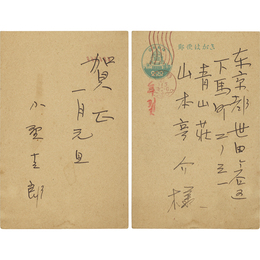 賀正
一月元旦
小
郎
郵便はがき
东京都世田谷区
下馬町二ノ三一
青山荘
山本夢介様